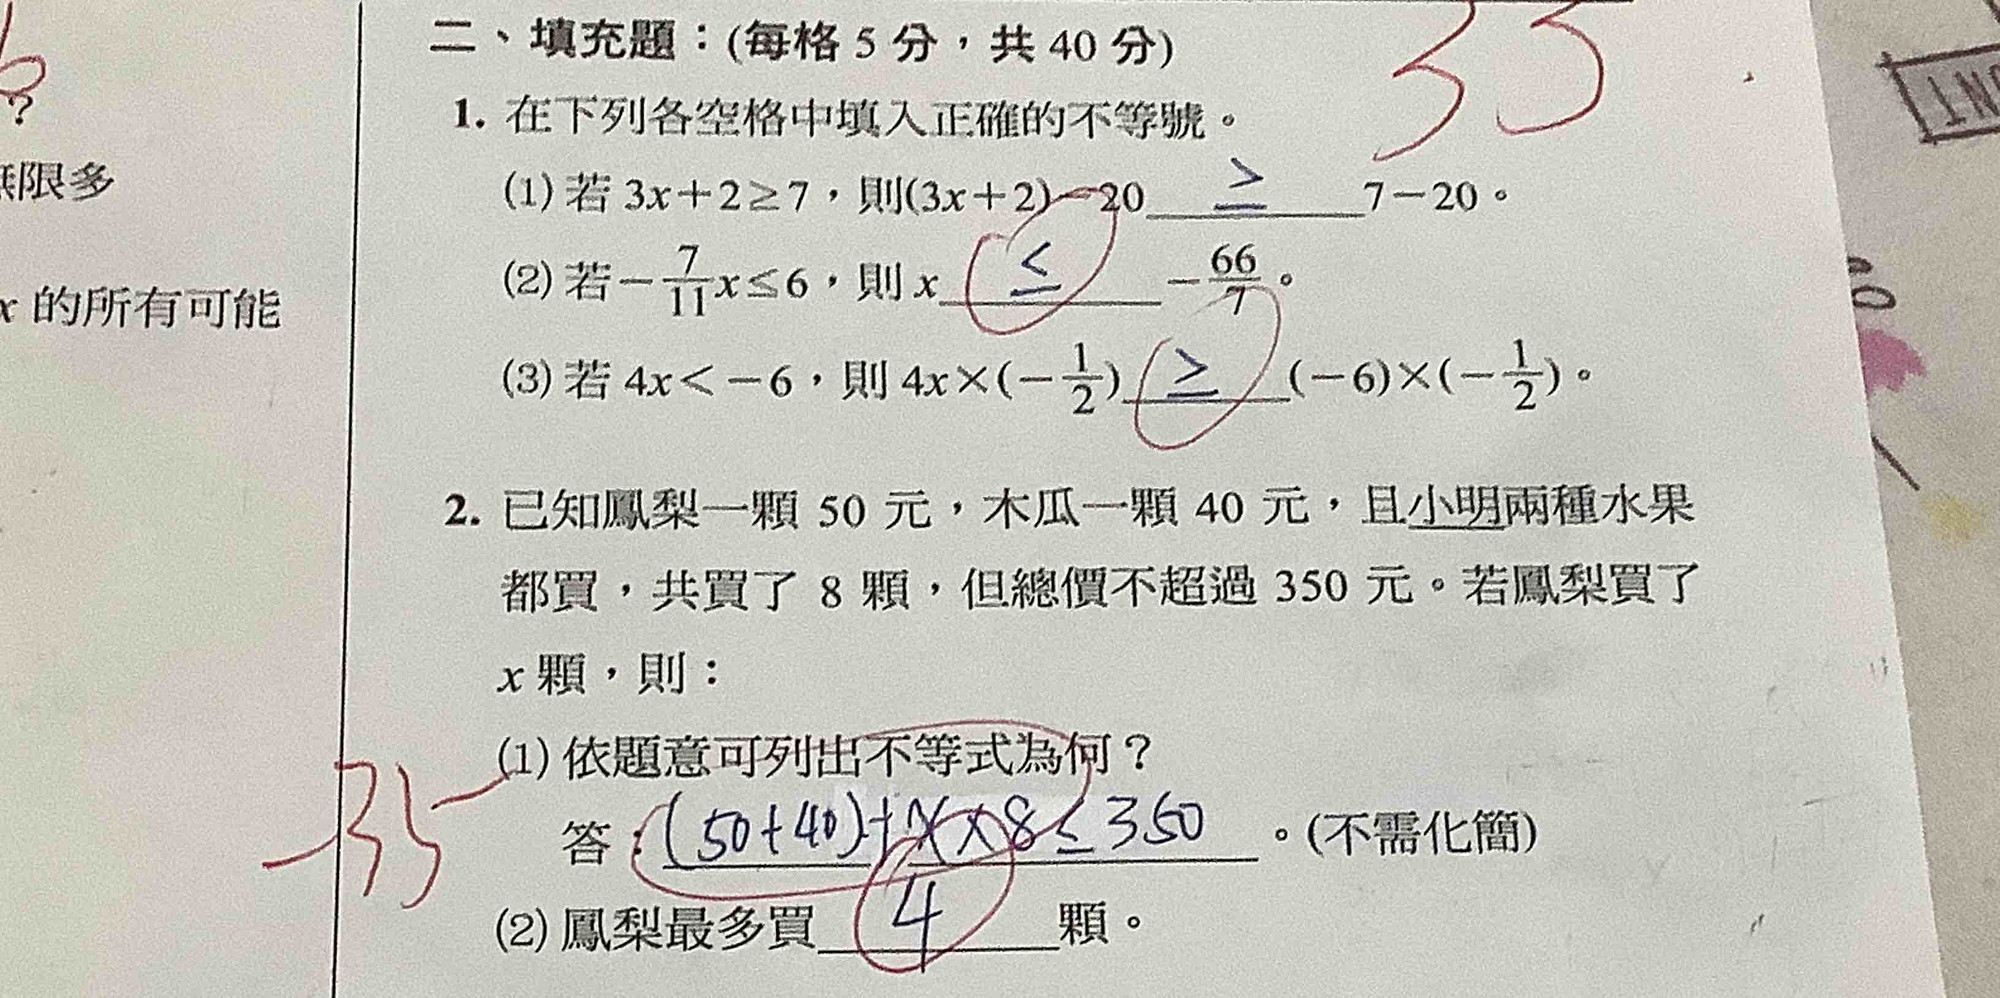 二、填充題：(每格 5 分，共 40 分)
35
1. 在下列各空格中填入正確的不等號。
(1) 若 3x＋2≥7，則(3x＋2)－20 ≥ 7－20。
(2) 若－7/11x≤6，則 x ≤ －66/7。
(3) 若 4x＜－6，則 4x×(－1/2) ≥ (－6)×(－1/2)。
2. 已知鳳梨一顆 50 元，木瓜一顆 40 元，且小明兩種水果
都買，共買了 8 顆，但總價不超過 350 元。若鳳梨買了
x 顆，則：
(1) 依題意可列出不等式為何？
-35
答：(50+40)+x×8≤350。(不需化簡)
(2) 鳳梨最多買 4 顆。
?
限多
x 的所有可能